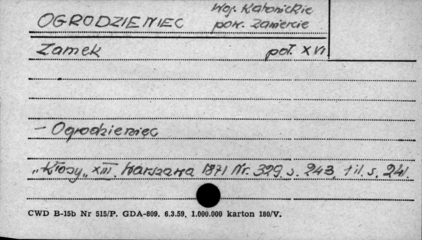 OGRODZIENIEC
Woj. Katowickie
pow. Zawiercie
Zamek poł. XVI
- Ogrodzieniec
"Kłosy" XIII, Warszawa 1871 Nr. 329, s. 243, + il. s. 241.
CWD B-15b Nr 515/P. GDA-809. 6.3.59. 1.000.000 karton 180/V.